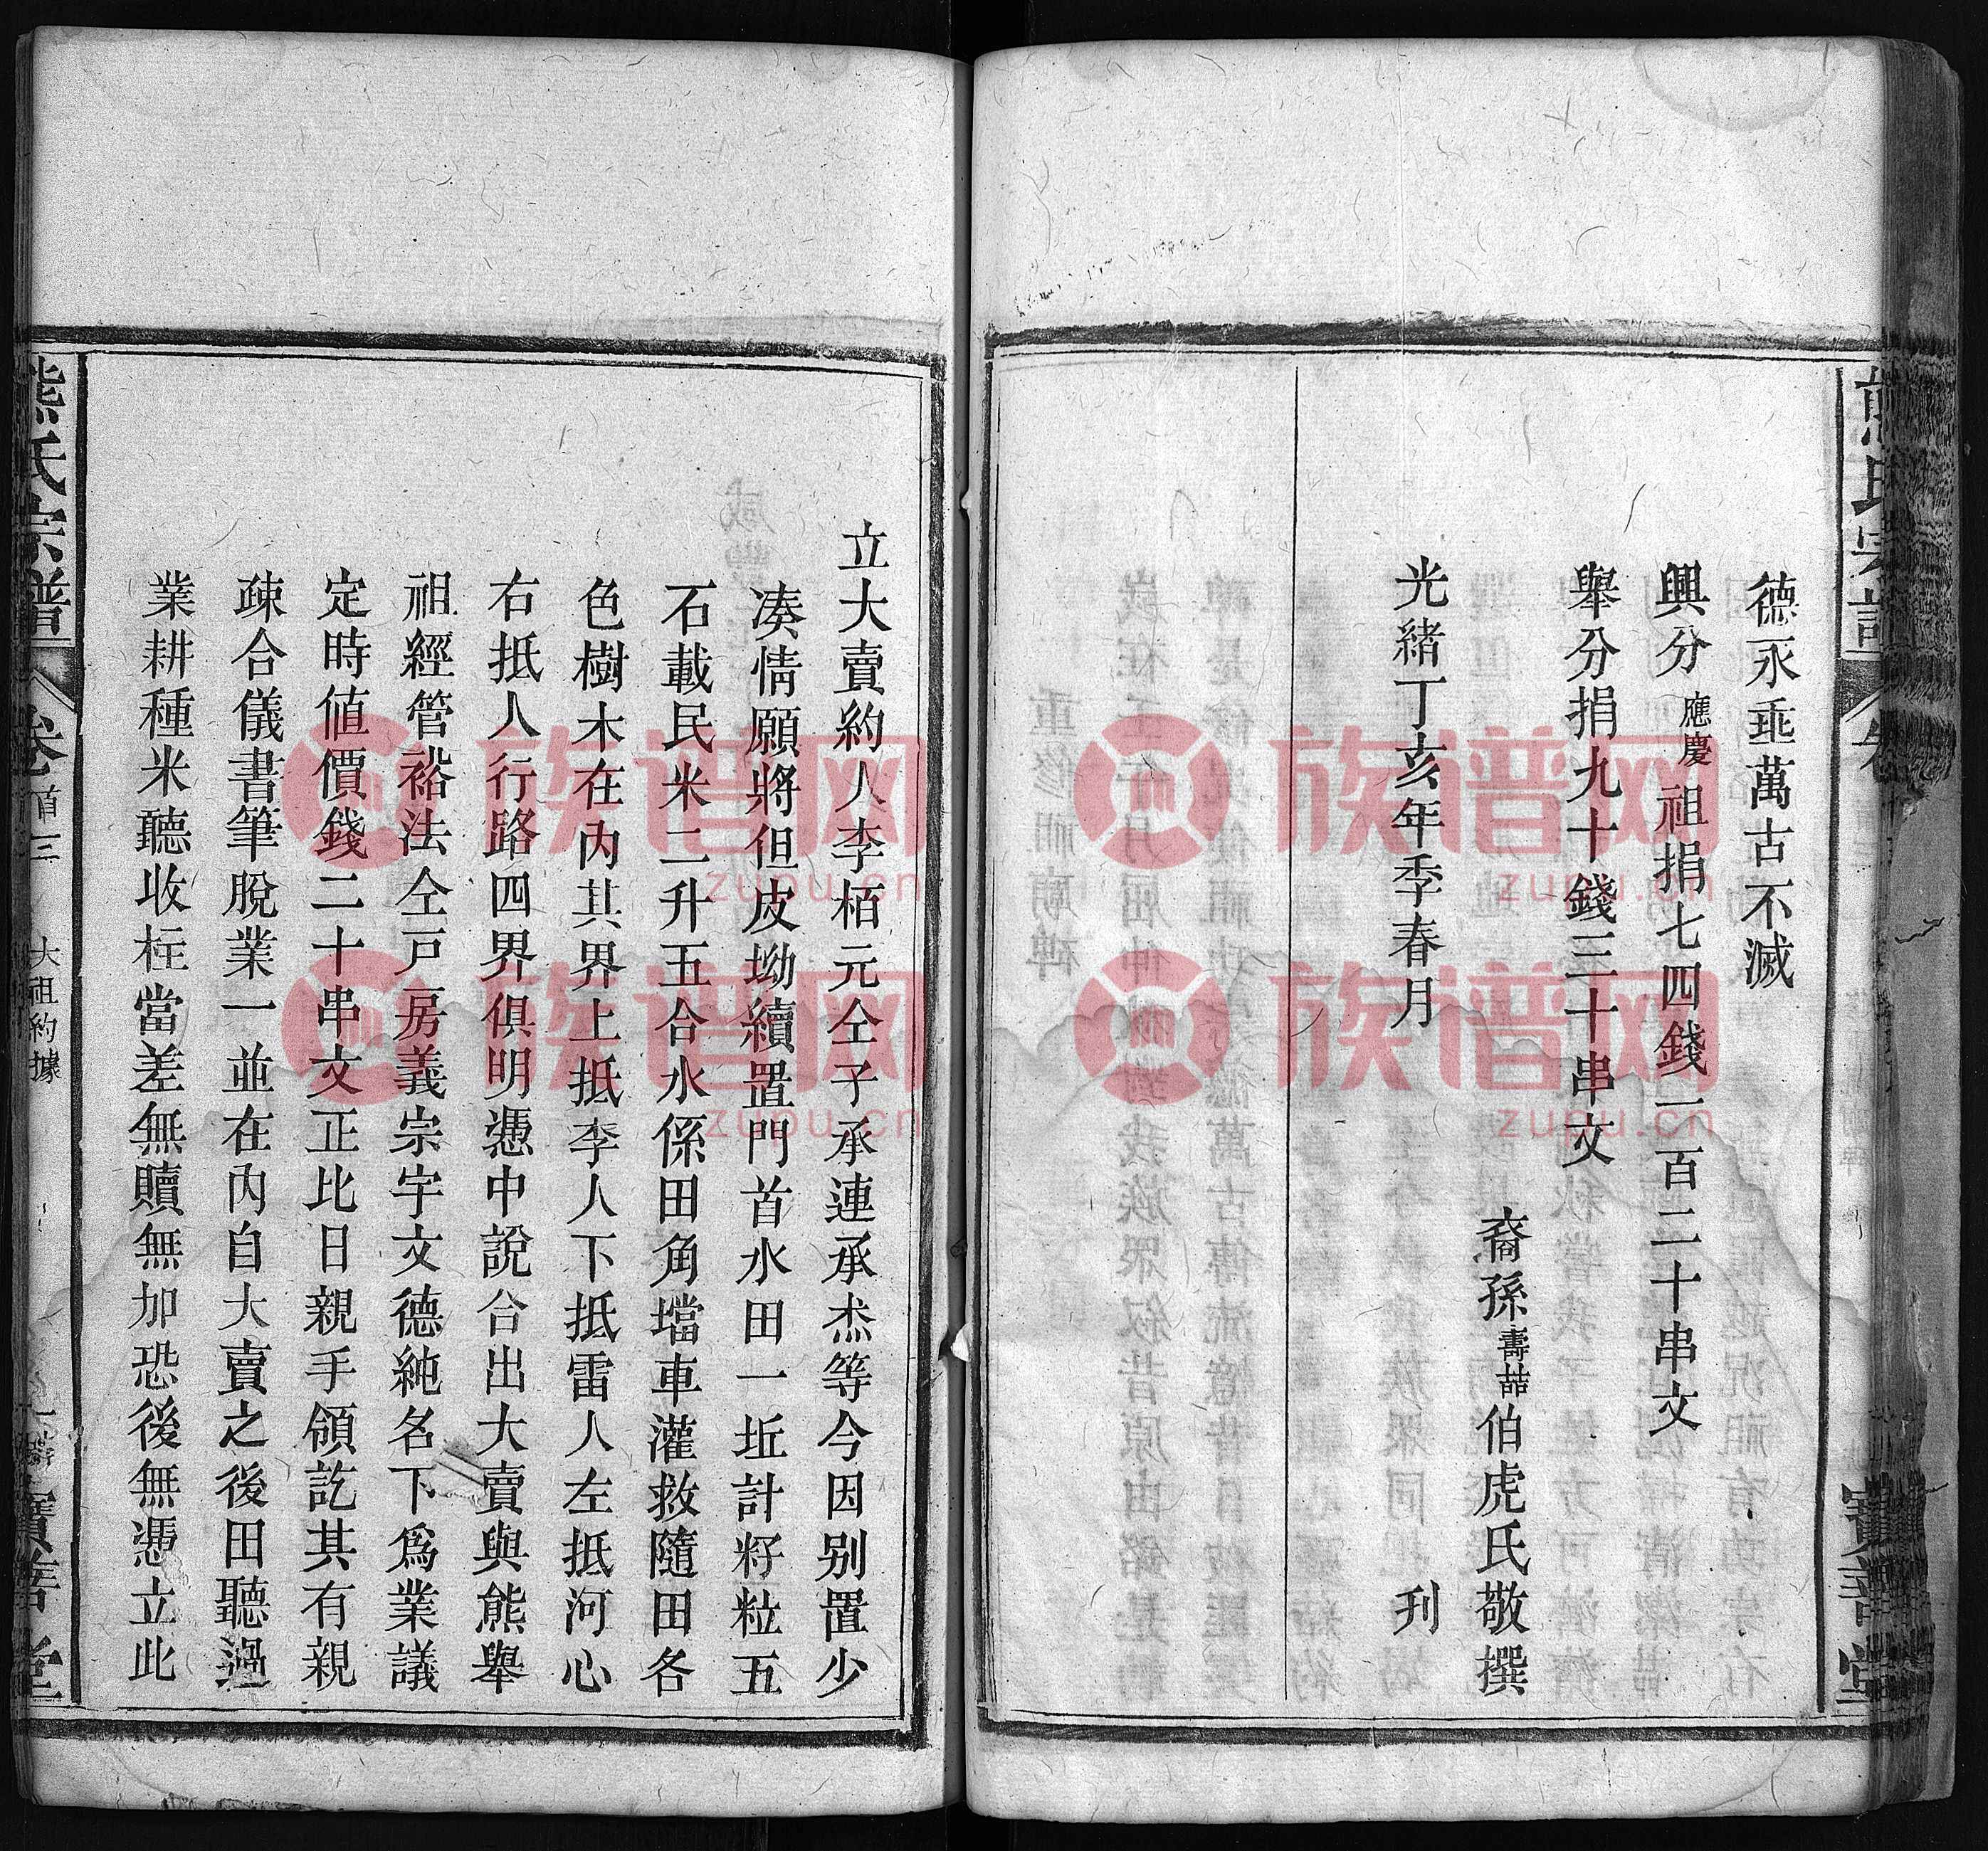 德永垂萬古不滅
興分應慶祖捐七四錢一百二十串文
舉分捐九十錢三十串文
裔孫壽喆伯虎氏敬撰
光緒丁亥年季春月 刋
立大賣約人李栢元仝子承連承杰等今因别置少
凑情願將但皮坳續置門首水田一坵計籽粒五
石載民米二升五合水係田角壋車灌救隨田各
色樹木在內其界上抵李人下抵雷人左抵河心
右抵人行路四界俱明憑中說合出大賣與熊舉
祖經管裕法仝戸房義宗宇文德純名下爲業議
定時値價錢二十串文正比日親手領訖其有親
疎合儀書筆脫業一並在內自大賣之後田聽過
業耕種米聽收柱當差無贖無加恐後無憑立此
熊氏宗譜 卷首三 大祖約據 寳善堂
族谱网
zupu.cn
族谱网
zupu.cn
族谱网
zupu.cn
族谱网
zupu.cn